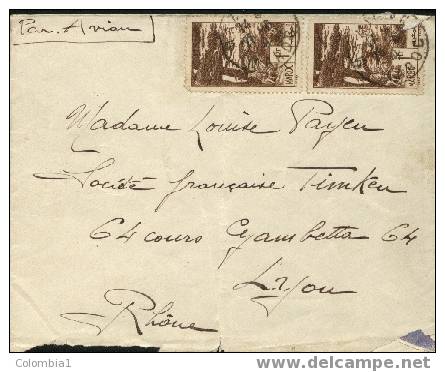 Par. Avion
MAROC
MAROC
Madame Louise Payen
Société française Timken
64 cours Gambetta 64
Lyon
Rhône
Colombia1
www.delcampe.net